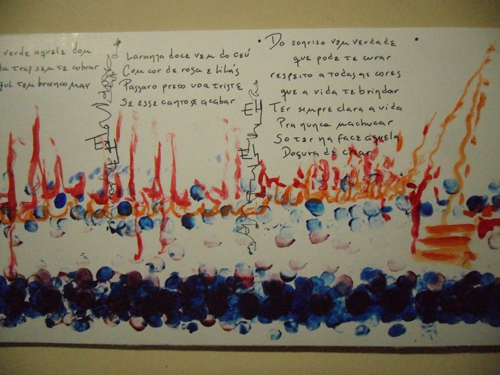 verde aquele dom
traz sem te cobrar
tem branco mar
Laranja doce vem do céu
Com cor de rosa e lilás
Pássaro preto voa triste
Se esse canto acabar
Do sonriso vem verdade
que pode te curar
respeito a todas as cores
que a vida te brindar
Ter sempre clara a vida
Pra nunca machucar
So ter na face aquela
Doçura de